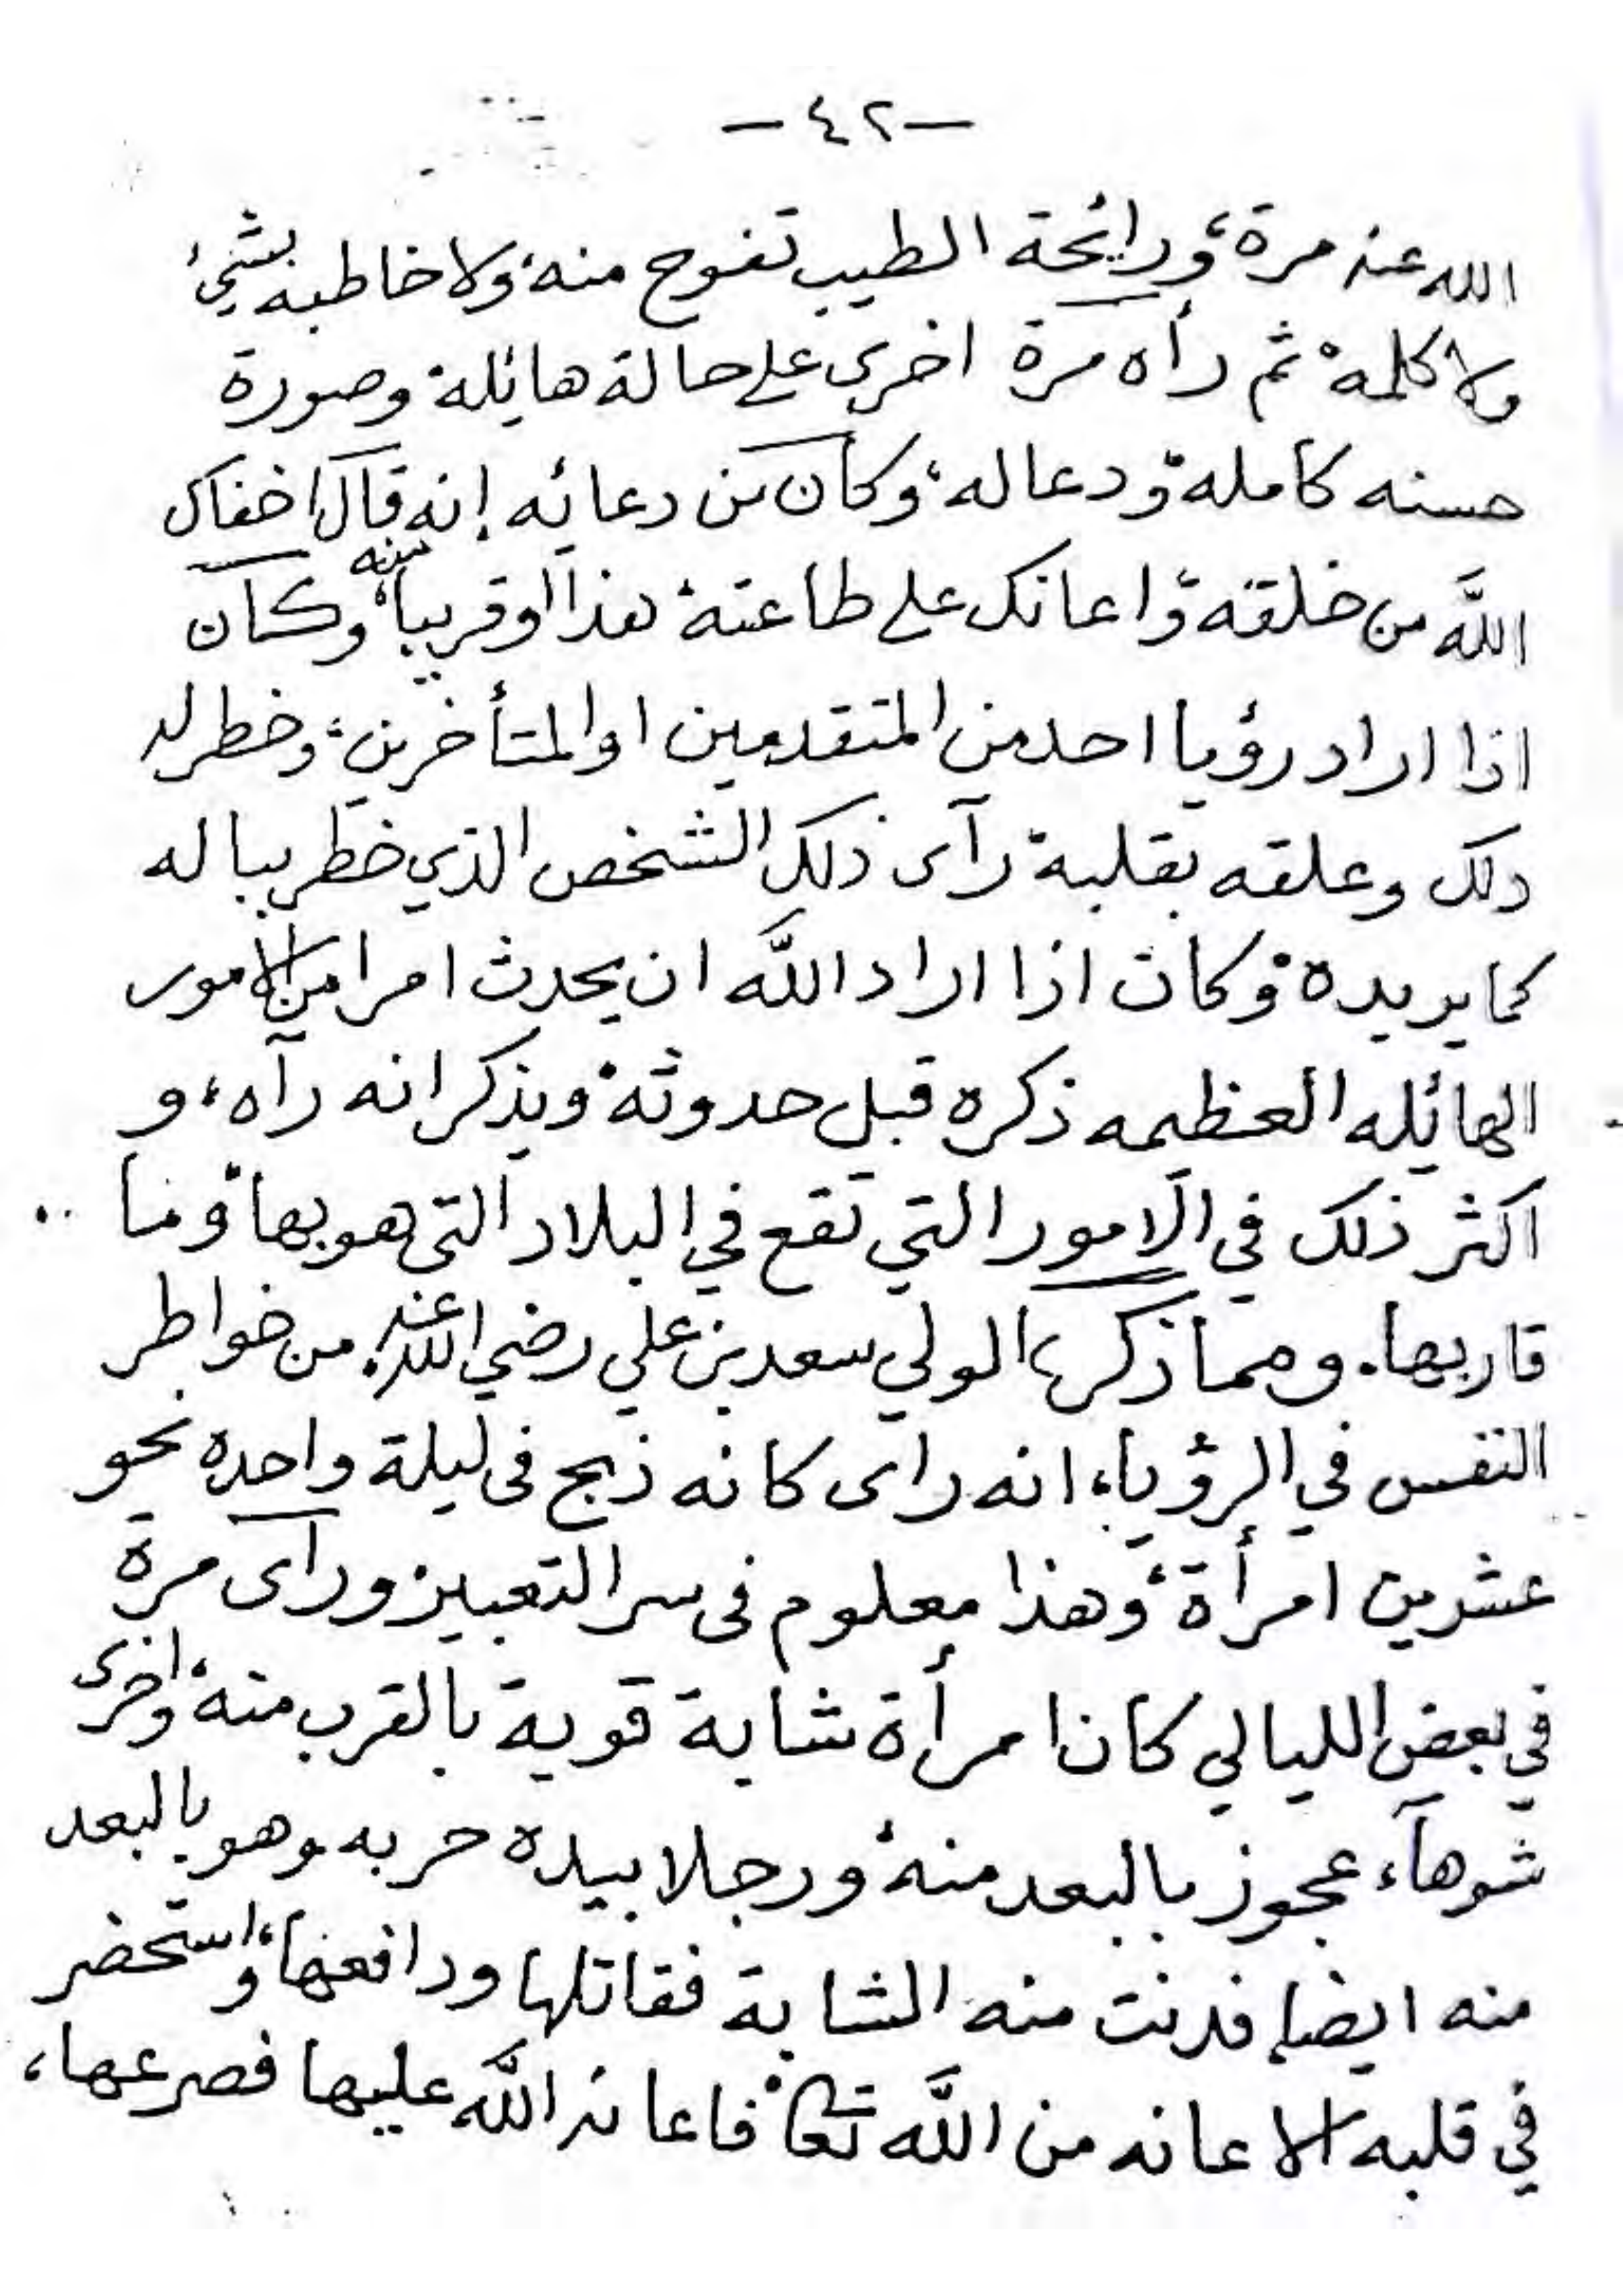 — ٤٢ —
الله عنه مرة، ورائحة الطيب تفوح منه، ولا خاطبه بشيء
ولا كلمه، ثم رأه مرة اخرى على حالة هائلة، وصورة
حسنه كامله، ودعا له، وكان من دعائه إنه قال اخفاك
الله من خلقه، واعانك على طاعته، هذا او قريبا منه، وكان
اذا اراد رؤيا احد من المتقدمين او المتأخرين، وخطر له
ذلك وعلقه بقلبة رآى ذلك الشخص الذي خطر بباله
كما يريده، وكان اذا اراد الله ان يحدث امرا من الامور
الهائله العظيمه ذكره قبل حدوثه، ويذكر انه رآه، و
اكثر ذلك في الامور التي تقع في البلاد التي هو بها، وما
قاربها. ومما ذكره الولي سعد بن علي رضي الله عنه من خواطر
النفس في الرؤيا، انه راى كانه ذبح في ليلة واحده نحو
عشرين امرأة، وهذا معلوم في سر التعبير ورآى مرة
في بعض الليالي كان امرأة شابة قوية بالقرب منه، واخرى
شوهآء عجوز بالبعد منه، ورجلا بيده حربه وهو بالبعد
منه ايضا فدنت منه الشابة فقاتلها ودافعها، واستحضر
في قلبه الاعانه من الله تعالى، فاعانه الله عليها فصرعها،